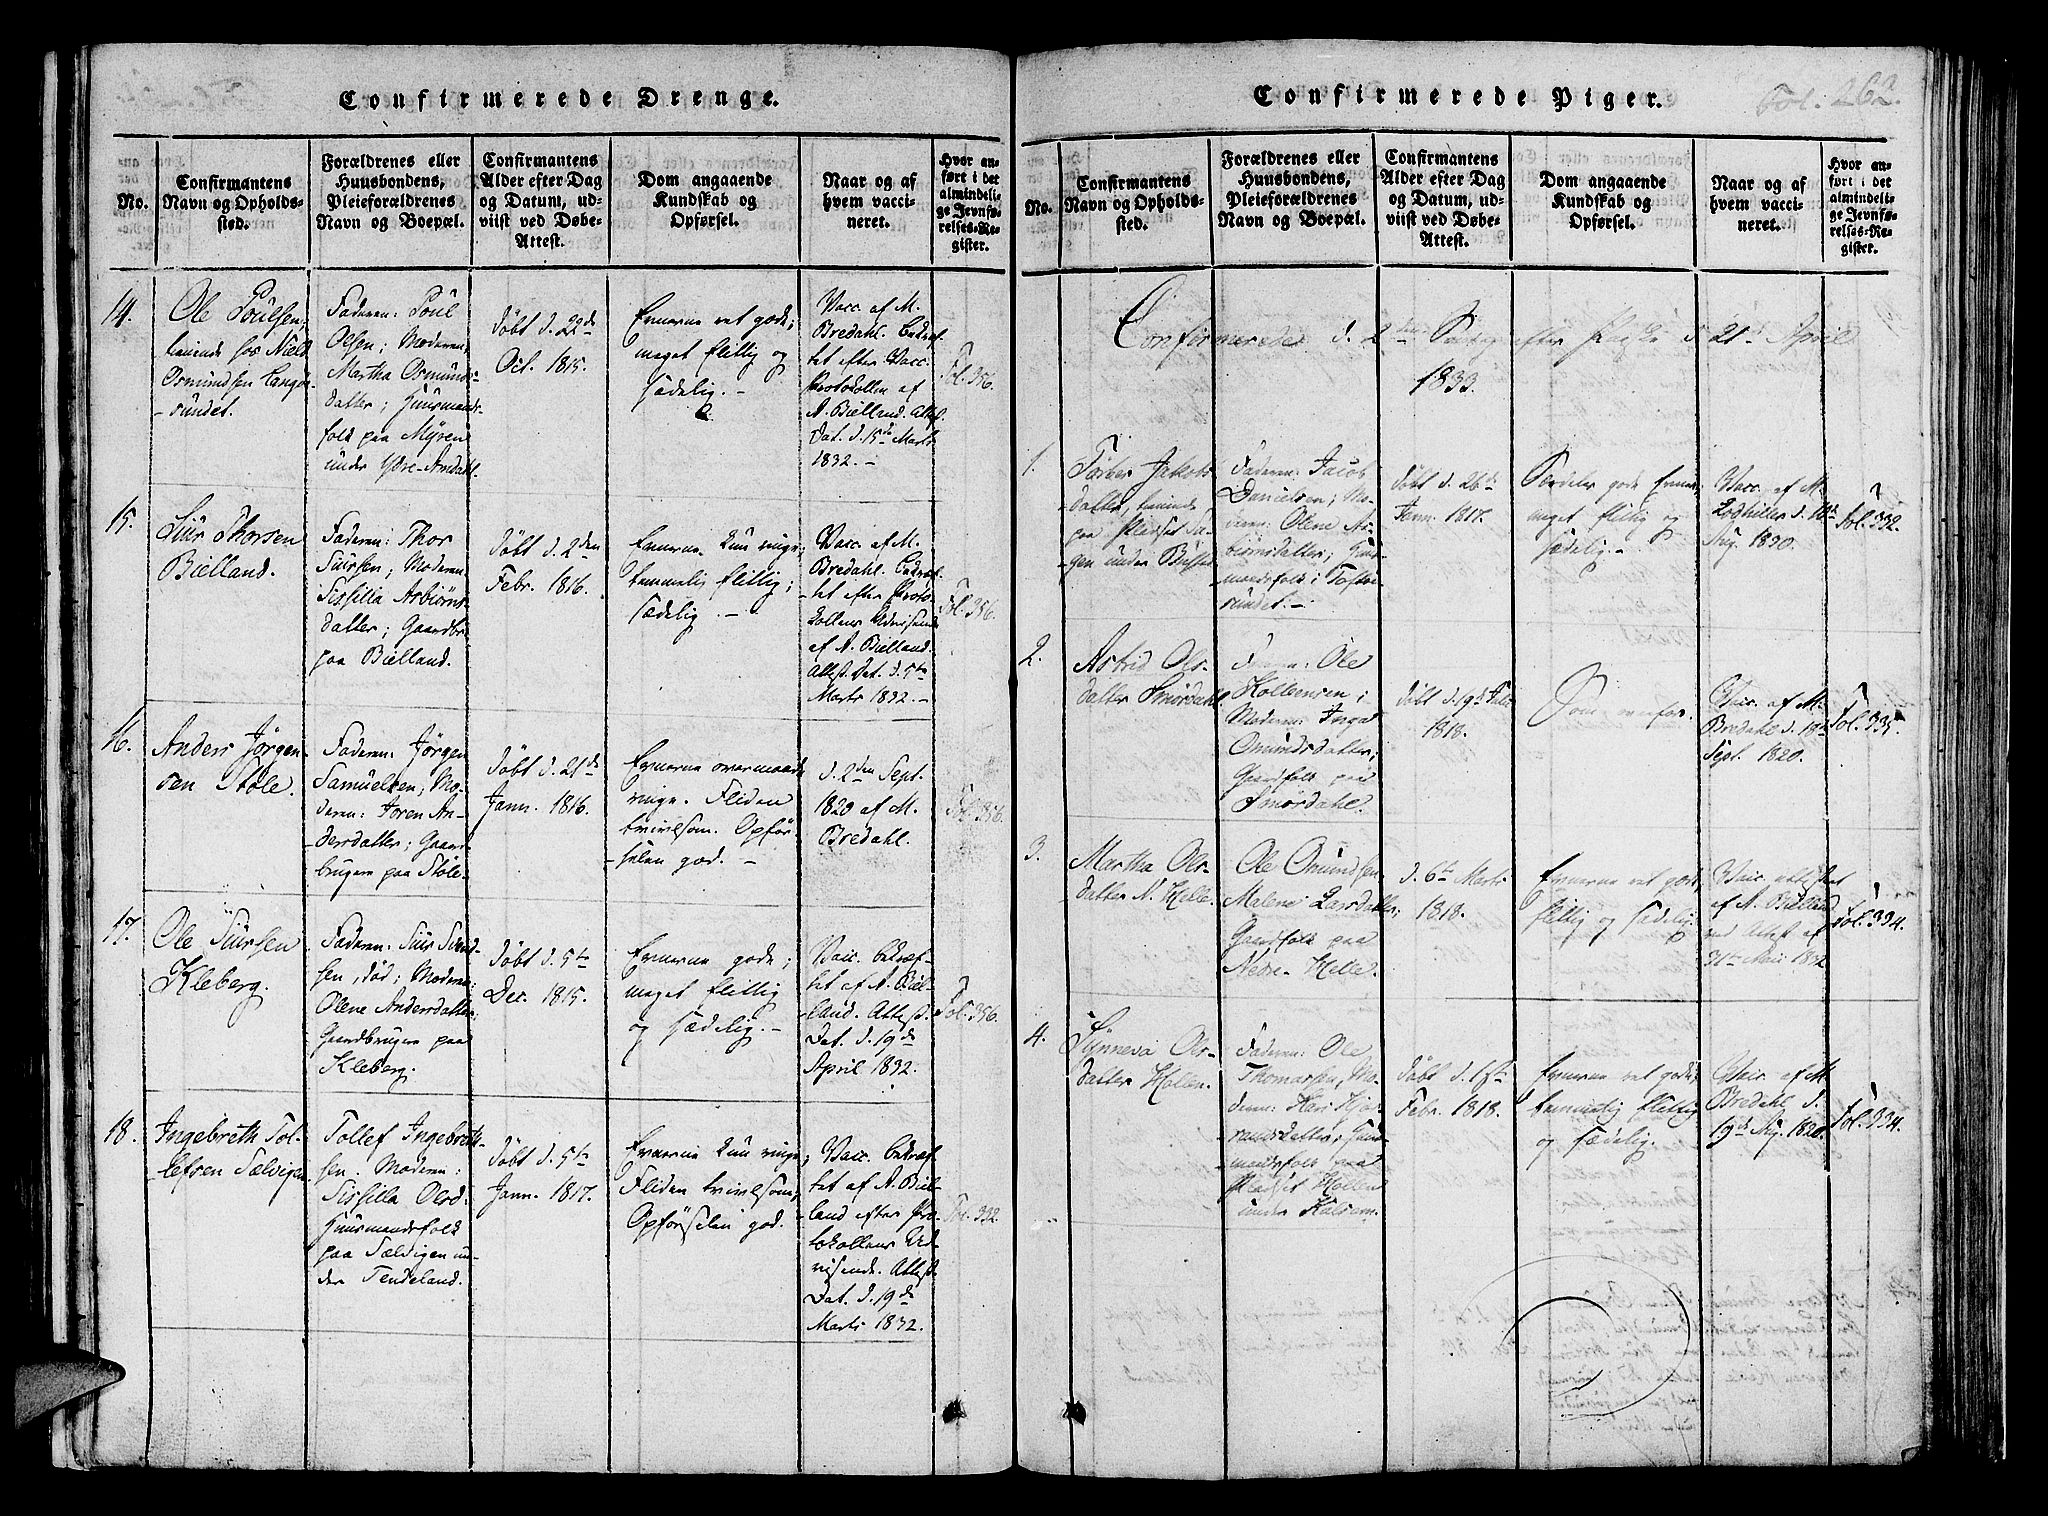 Confirmerede Drenge.
No.
Confirmantens
Navn og Opholds-
sted.
Forældrenes eller
Huusbondens,
Pleieforældrenes
Navn og Boepæl.
Confirmantens
Alder efter Dag
og Datum, ud-
viist ved Døbe-
Attest.
Dom angaaende
Kundskab og
Opførsel.
Naar og af
hvem vacci-
neret.
Hvor an-
ført i det
almindeli-
ge Jevnfø-
relses-Re-
gister.
14.
Ole Poulsen,
tienende hos Niels
Osmundsen Langø-
-sundet.
Faderen: Poul
Olsen; Moderen,
Martha Osmunds-
datter; Huusmands-
folk paa Myren
under Ydre-Arndahl.
Døbt d. 22de
Oct. 1815.
meget flittig og
sædelig. -
Vacc. af M.
Bredahl. Bekræf-
tet efter Vacc.
Protokollen af
A. Bielland. Attest.
Dat. d. 15de Marts
1832. -
Fol. 356.
15.
Siur Thorsen
Bielland.
Faderen: Thor
Siursen; Moderen,
Sissilia Asbiørns-
datter; Gaardbr.
paa Bielland.
Døbt d. 2den
Febr. 1816.
temmelig flittig;
sædelig. -
Vacc. af M.
Bredahl. Bekræf-
-tet efter Proto-
kollens Udvisende
af A. Bielland.
Attest. Dat. d. 5te
Marts 1832. -
Fol. 356.
16.
Anders Jørgen-
sen Støle.
Faderen: Jørgen
Samuelsen; Mo-
deren: Joren An-
-dersdatter; Gaard-
brugere paa Støle.
Døbt d. 21de
Jann. 1816.
Evnerne overmaade
ringe. Fliden
tvivlsom. Opfør-
-selen god. -
d. 2den Sept.
1820 af M.
Bredahl.
Fol. 356.
17.
Ole Siursen
Kleberg.
Faderen: Siur Svend-
sen, død; Moderen:
Olene Andersdatter;
Gaardbrugere paa
Kleberg.
Døbt d. 5te
Dec. 1815.
Evnerne gode;
meget flittig
og sædelig. -
Vacc. bekræf-
tet af A. Biel-
land. Attest.
Dat. d. 19de
April 1832.
Fol. 356.
18.
Ingebreth Tol-
lefsen Sælvigen
Tollef Ingebreth-
sen. Moderen:
Sissilla Olsd.
Huusmandsfolk
paa Sælvigen un-
der Tendeland.
Døbt d. 5te
Jann. 1817.
Evnerne kun ringe,
Fliden tvivlsom,
Opførselen god.
Vacc. bekræf-
-tet af A. Biel-
-land efter Pro-
tokollens Ud-
visende. Attest.
Dat. d. 19de
Marts 1832.
Fol. 332.
Confirmerede Piger.
Fol. 262.
No.
Confirmantens
Navn og Opholds-
sted.
Forældrenes eller
Huusbondens,
Pleieforældrenes
Navn og Boepæl.
Confirmantens
Alder efter Dag
og Datum, ud-
viist ved Døbe-
Attest.
Dom angaaende
Kundskab og
Opførsel.
Naar og af
hvem vacci-
neret.
Hvor an-
ført i det
almindeli-
ge Jevnfø-
relses-Re-
gister.
Confirmerede d. 2den Søndag efter Paaske d. 21de April
1833.
1.
Jakobs-
datter, tienende
paa Pladset
Faderen: Jacob
Danielsen; Mo-
deren: Olene As-
biørnsdatter; Huus-
mandsfolk i
Døbt d. 26de
Jann. 1817.
Særdeles gode Evner,
meget flittig og
sædelig. -
Vacc. af M.
Aug. 1820.
Fol. 332.
2.
Astrid Ols-
datter Smørdahl.
Faderen: Ole
Kolbensen;
Moderen: Ingal
Omundsdatter;
Gaardfolk paa
Smørdahl.
Døbt d. 19de
1818.
Som ovenfor.
Vacc. af M.
Bredahl d. 18de
Sept. 1820.
Fol. 335.
3.
Martha Ols-
datter N. Helle.
Ole Omundsen
Malene Larsdatter,
Gaardfolk paa
Nedre-Helle.
d. 6te Marts
1818.
Evnerne ret gode,
flittig og sædelig.
Vacc. attesteret
af A. Bielland
ved Attest af
31te Mai 1832
Fol. 334.
4.
Synneva Ols-
datter Hollen.
Faderen: Ole
Thomassen, Mo-
deren: Kari
Huus-
mandsfolk paa
Pladset Hollen
under Kalsem.
Døbt d. 1ste
Febr. 1818.
Evnerne ret gode,
temmelig flittig
og sædelig.
Vacc. af M.
Bredahl d.
19de Aug. 1820.
Fol. 334.